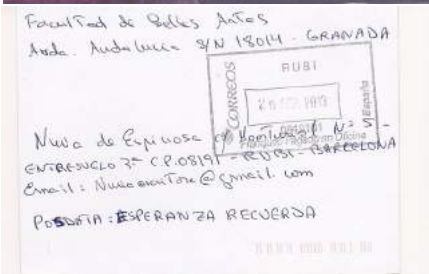 Facultad de Bellas Artes
Avda. Andalucia S/N 18014 - GRANADA
CORREOS
RUBI
España
Franqueo Pagado en Oficina
Nuria de Espinosa
ENTRESUELO 3ª C.P. 08191 - RUBI - BARCELONA
Email: @gmail.com
POSDATA: ESPERANZA RECUERDA